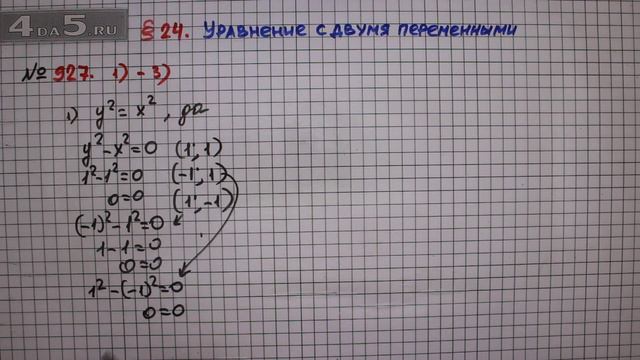 4DA5.RU
§ 24. Уравнение с двумя переменными
№ 927. 1) - 3)
1) y² = x², да
y² - x² = 0 (1; 1)
1² - 1² = 0 (-1; 1)
0 = 0 (1; -1)
(-1)² - 1² = 0
1 - 1 = 0
0 = 0
1² - (-1)² = 0
0 = 0